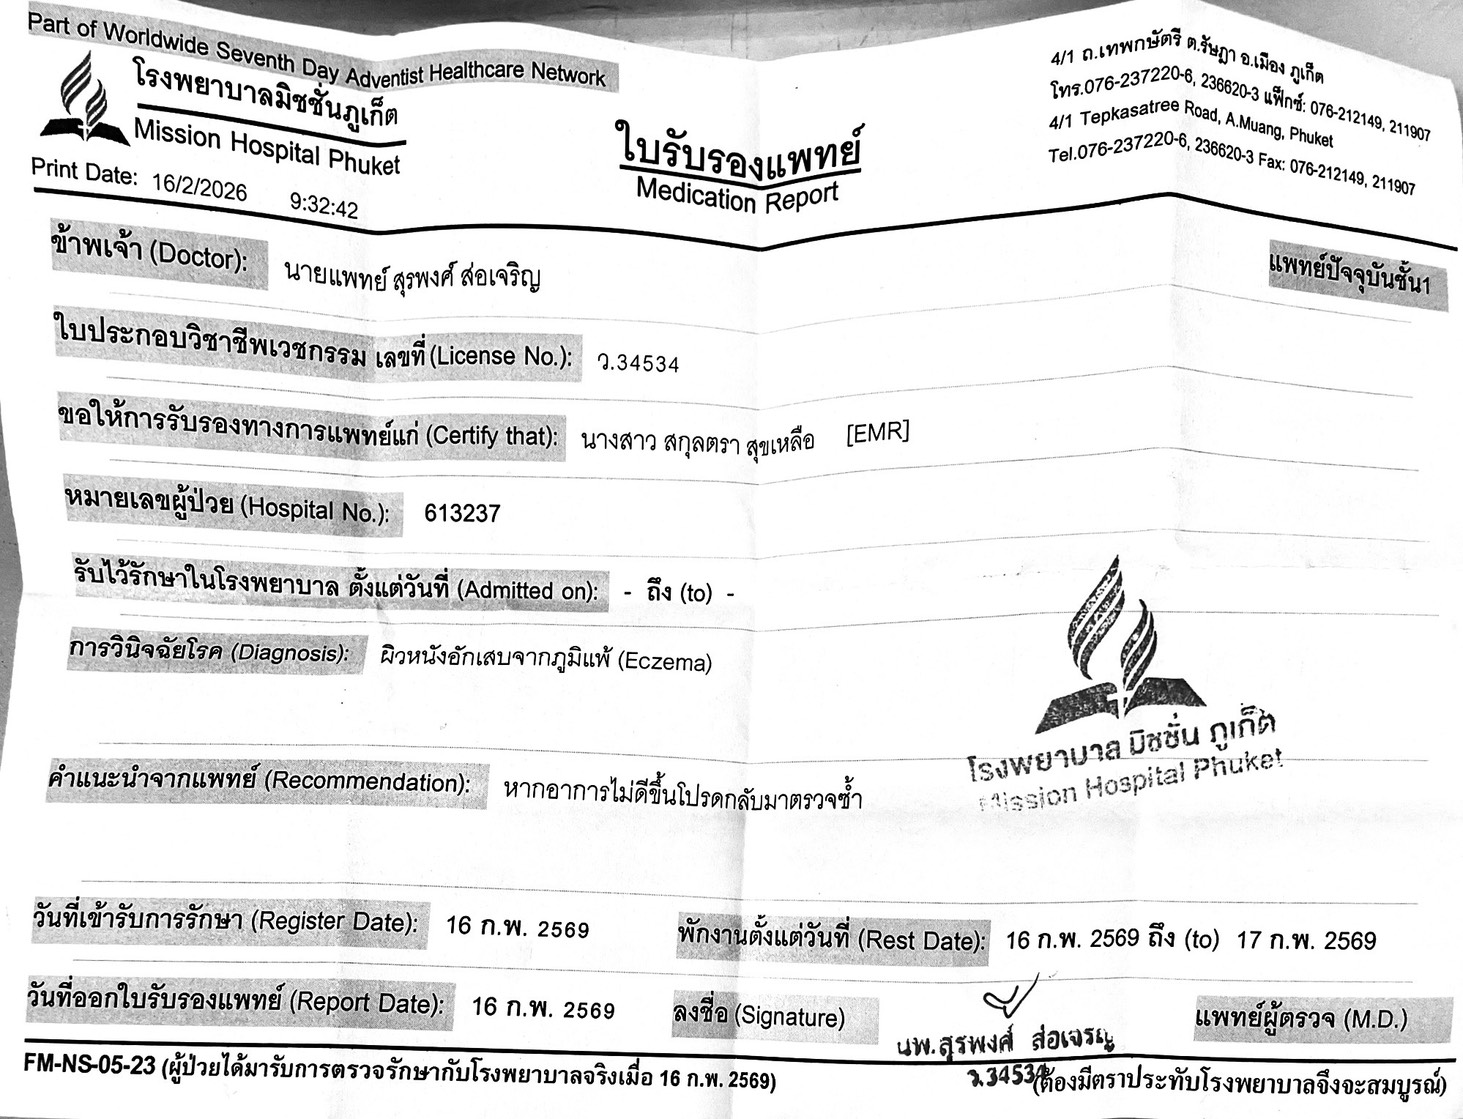 Part of Worldwide Seventh Day Adventist Healthcare Network
โรงพยาบาลมิชชั่นภูเก็ต
Mission Hospital Phuket
Print Date: 16/2/2026 9:32:42
ใบรับรองแพทย์
Medication Report
4/1 ถ.เทพกษัตรี ต.รัษฎา อ.เมือง ภูเก็ต
โทร.076-237220-6, 236620-3 แฟ็กซ์: 076-212149, 211907
4/1 Tepkasatree Road, A.Muang, Phuket
Tel.076-237220-6, 236620-3 Fax: 076-212149, 211907
ข้าพเจ้า (Doctor): นายแพทย์ สุรพงศ์ ส่อเจริญ แพทย์ปัจจุบันชั้น1
ใบประกอบวิชาชีพเวชกรรม เลขที่ (License No.): ว.34534
ขอให้การรับรองทางการแพทย์แก่ (Certify that): นางสาว สกุลตรา สุขเหลือ [EMR]
หมายเลขผู้ป่วย (Hospital No.): 613237
รับไว้รักษาในโรงพยาบาล ตั้งแต่วันที่ (Admitted on): - ถึง (to) -
การวินิจฉัยโรค (Diagnosis): ผิวหนังอักเสบจากภูมิแพ้ (Eczema)
โรงพยาบาล มิชชั่น ภูเก็ต
Mission Hospital Phuket
คำแนะนำจากแพทย์ (Recommendation): หากอาการไม่ดีขึ้นโปรดกลับมาตรวจซ้ำ
วันที่เข้ารับการรักษา (Register Date): 16 ก.พ. 2569 พักงานตั้งแต่วันที่ (Rest Date): 16 ก.พ. 2569 ถึง (to) 17 ก.พ. 2569
วันที่ออกใบรับรองแพทย์ (Report Date): 16 ก.พ. 2569 ลงชื่อ (Signature) แพทย์ผู้ตรวจ (M.D.)
นพ.สุรพงศ์ ส่อเจริญ
ว.34534
FM-NS-05-23 (ผู้ป่วยได้มารับการตรวจรักษากับโรงพยาบาลจริงเมื่อ 16 ก.พ. 2569) (ต้องมีตราประทับโรงพยาบาลจึงจะสมบูรณ์)